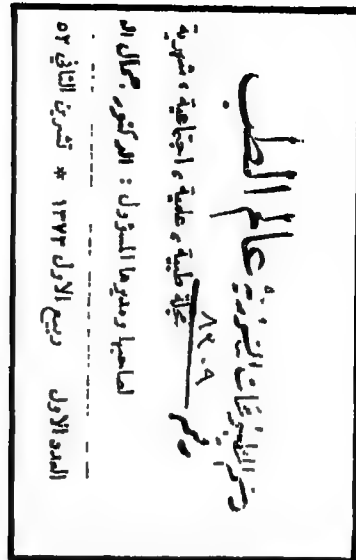 عالم الطب
رقم
٨٤٠٩
مجلة طبية ، علمية ، اجتماعية ، شهرية
لصاحبها ومديرها المسؤول : الدكتور جمال الد
العدد الاول ربيع الاول ١٣٧٢ * تشرين الثاني ٥٢